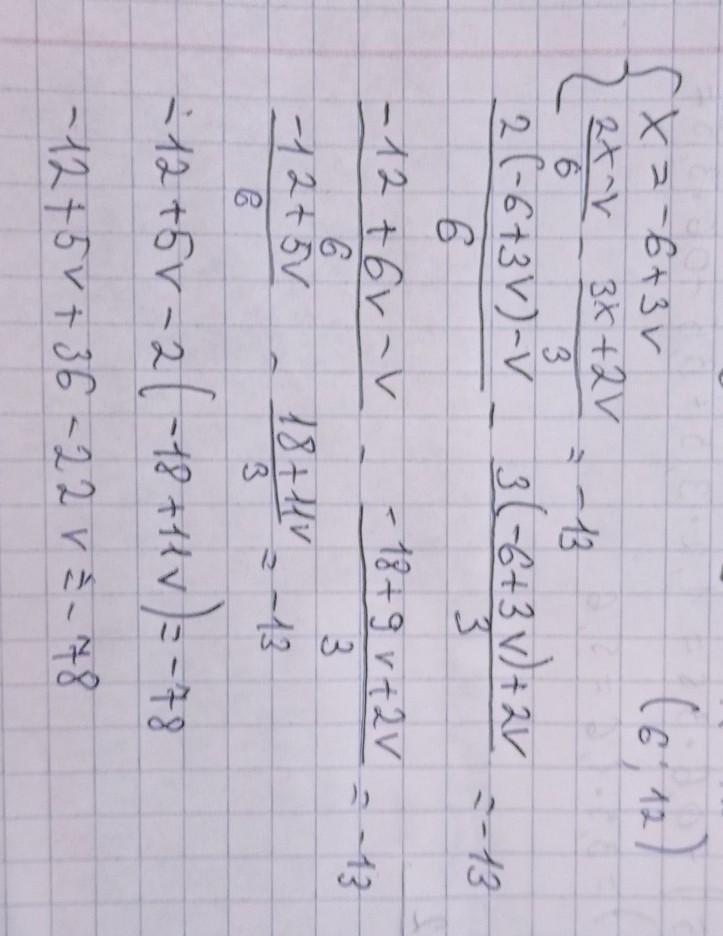 x = -6+3v (6; 12)
(2x-v)/6 - (3x+2v)/3 = -13
(2(-6+3v)-v)/6 - (3(-6+3v)+2v)/3 = -13
(-12+6v-v)/6 - (-18+9v+2v)/3 = -13
(-12+5v)/6 - (18+11v)/3 = -13
-12+5v-2(-18+11v)=-78
-12+5v+36-22v=-78